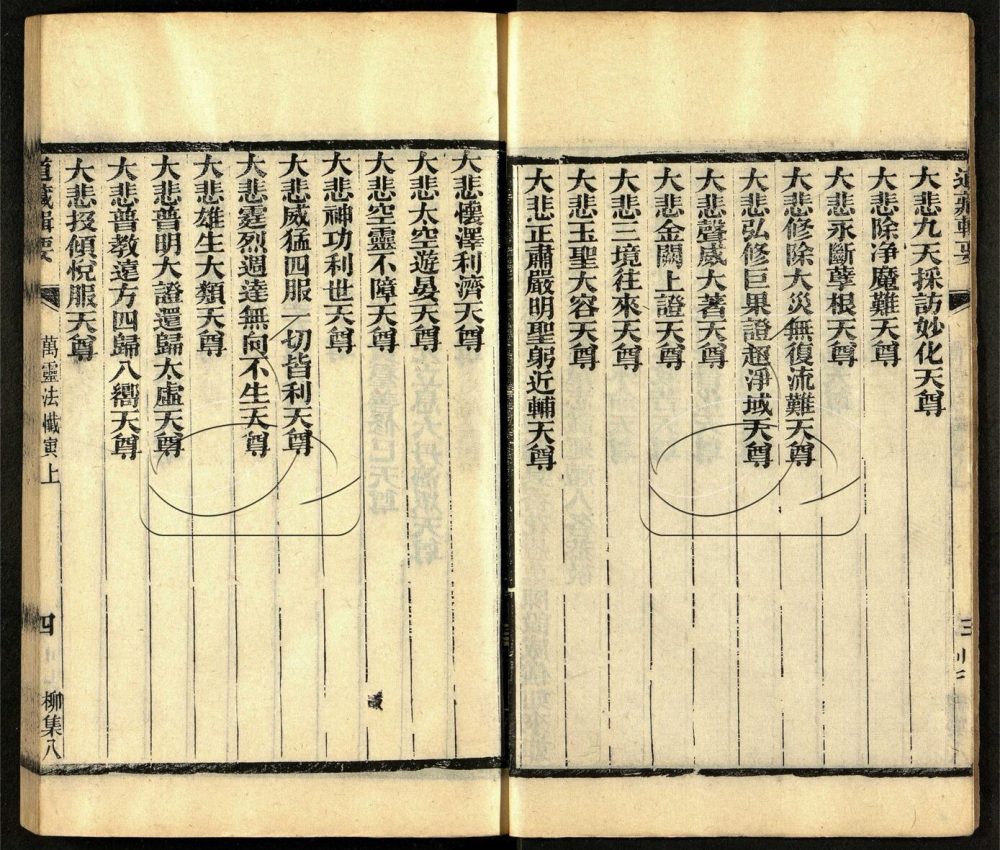 大悲九天採訪妙化天尊
大悲除净魔難天尊
大悲永斷孽根天尊
大悲修除大災無復流難天尊
大悲弘修巨果證超淨域天尊
大悲聲葳大著天尊
大悲金闕上證天尊
大悲三境往來天尊
大悲玉聖大容天尊
大悲正肅嚴明聖躬近輔天尊
大悲懷澤利濟天尊
大悲太空遊晏天尊
大悲空靈不障天尊
大悲神功利世天尊
大悲威猛四服一切皆利天尊
大悲霆烈週達無向不生天尊
大悲雄生大類天尊
大悲普明大證還歸太虛天尊
大悲普教遠方四歸八嚮天尊
大悲投傾悅服天尊
道藏輯要
萬靈法懴寅上
四
柳集八